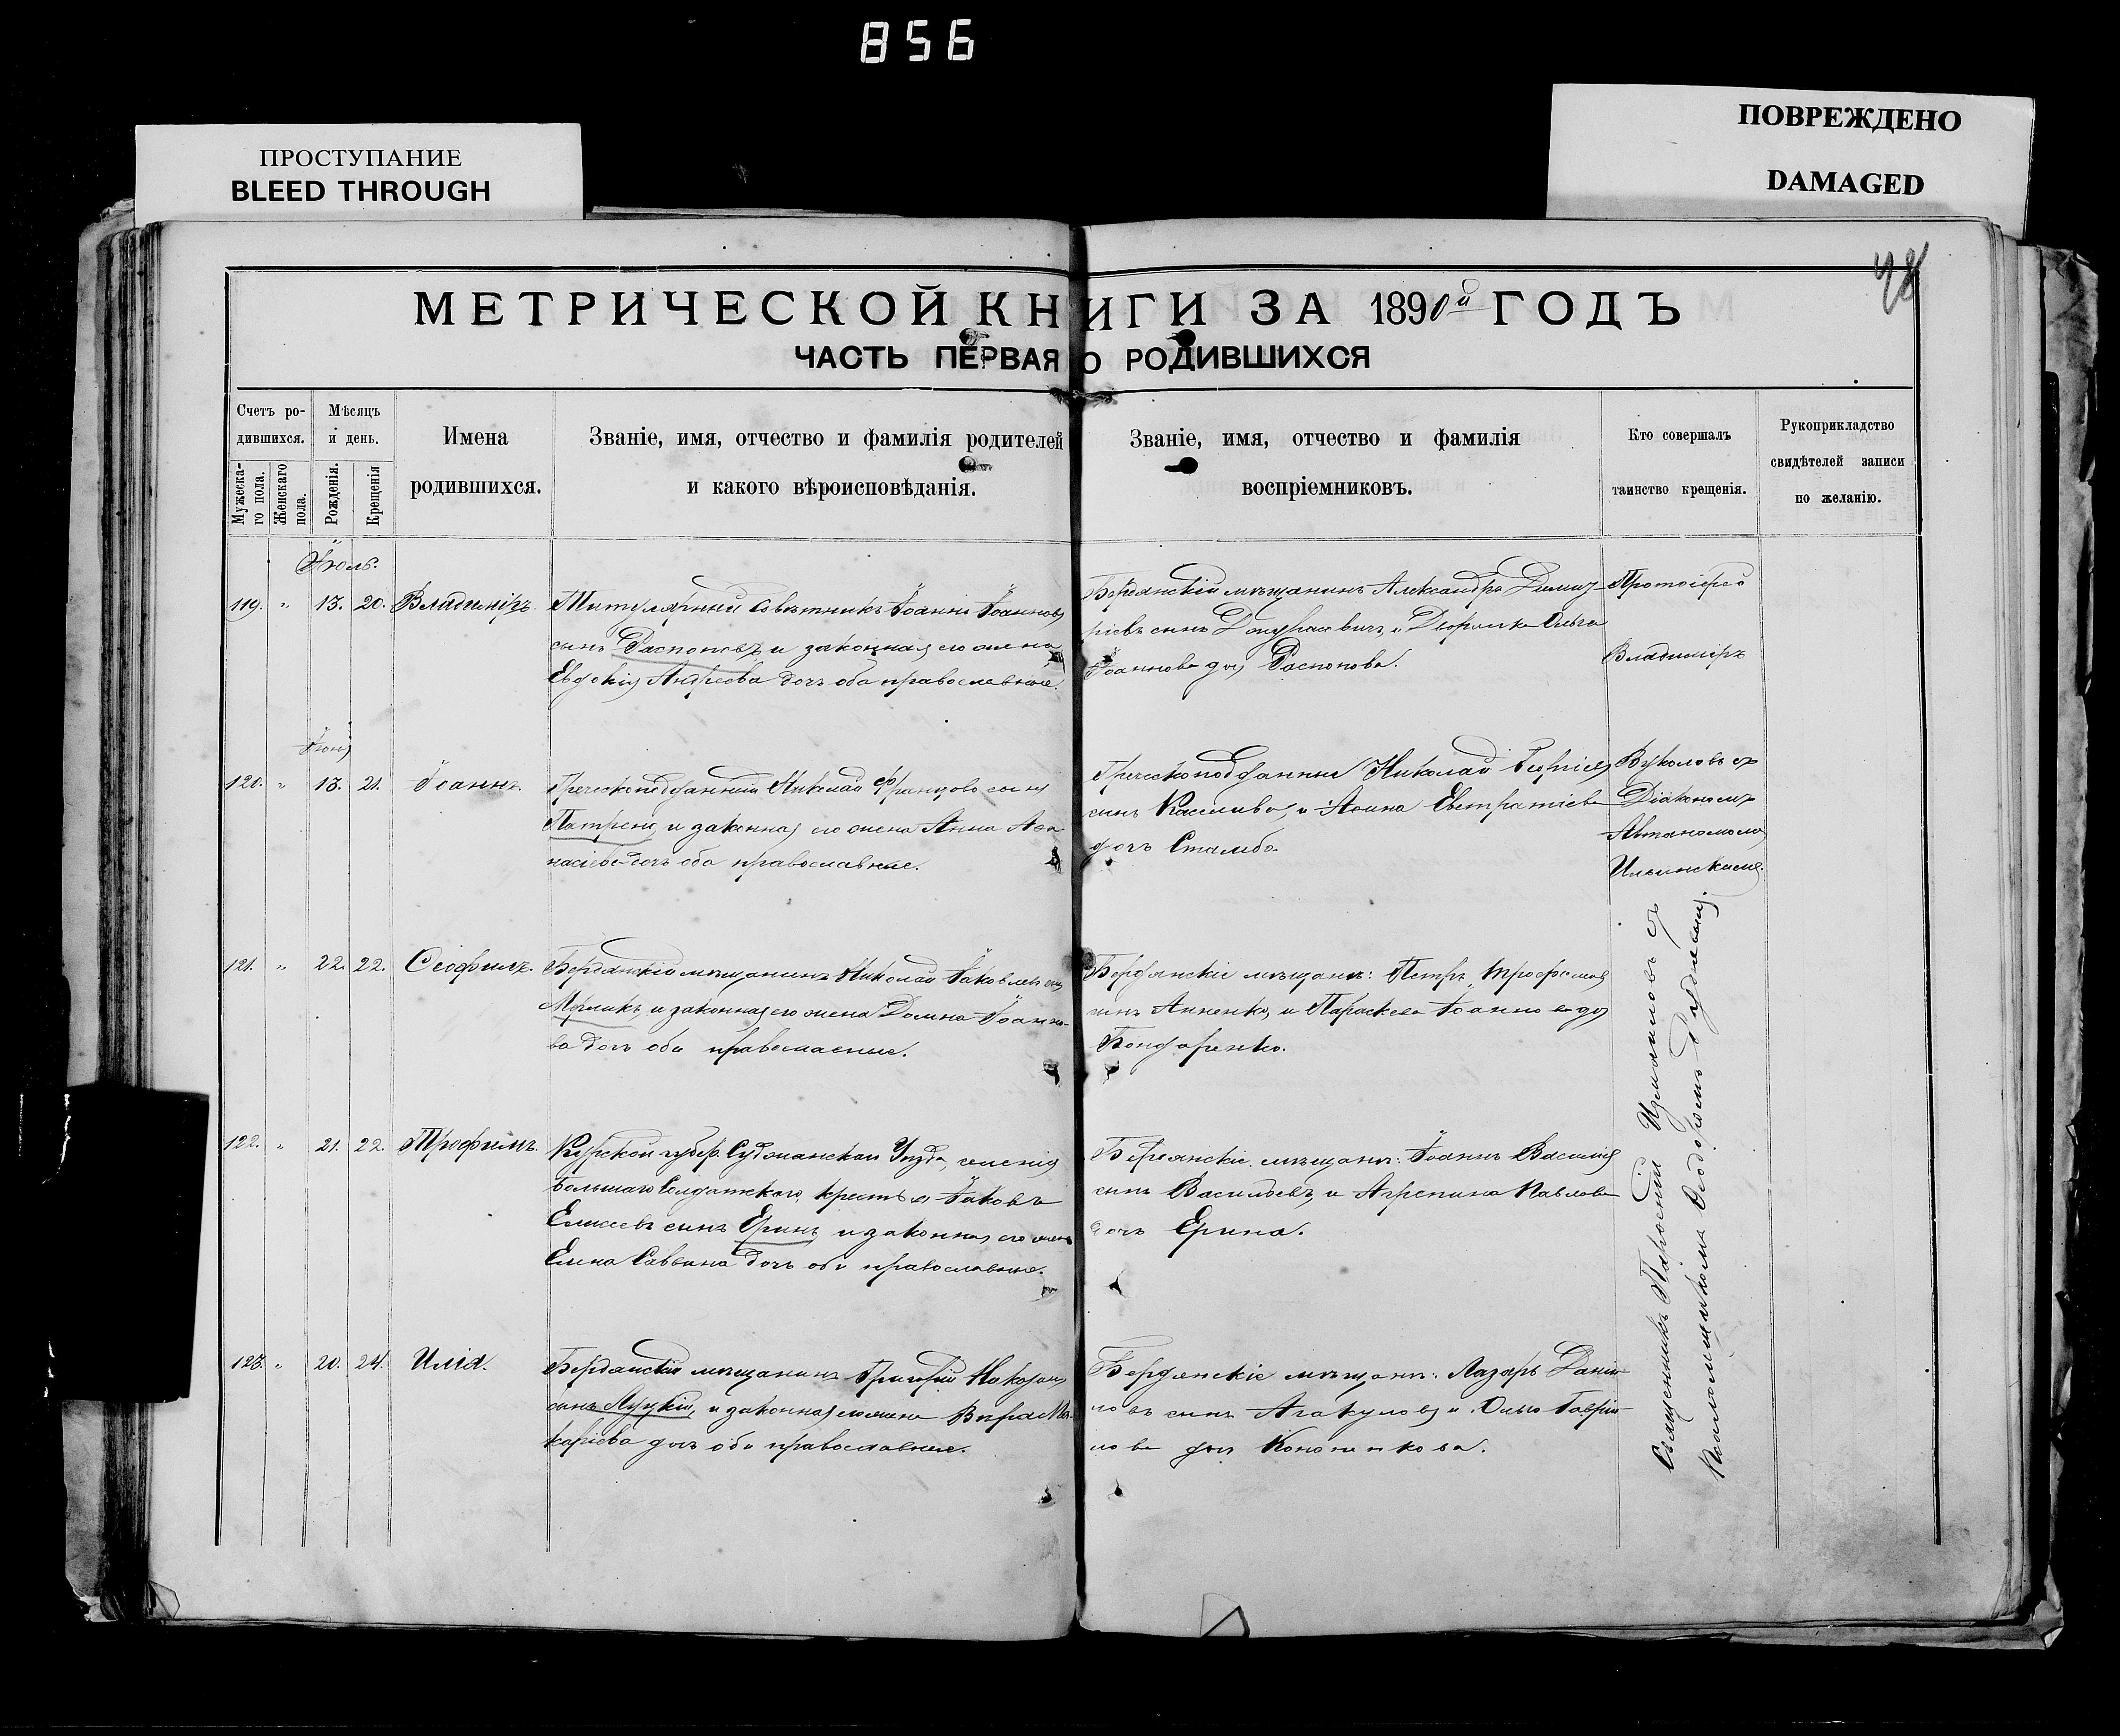 856
ПРОСТУПАНИЕ
BLEED THROUGH
ПОВРЕЖДЕНО
DAMAGED
48
МЕТРИЧЕСКОЙ КНИГИ ЗА 1890й ГОДЪ
ЧАСТЬ ПЕРВАЯ О РОДИВШИХСЯ
Счетъ ро-
дившихся.
Мужеска-
го пола.
Женскаго
пола.
Мѣсяцъ
и день.
Рожденія.
Крещенія
Имена
родившихся.
Званіе, имя, отчество и фамилія родителей
и какого вѣроисповѣданія.
Званіе, имя, отчество и фамилія
воспріемниковъ.
Кто совершалъ
таинство крещенія.
Рукоприкладство
свидѣтелей записи
по желанію.
Іюль.
119. " 13. 20. Владиміръ.
Титулярный Совѣтникъ Іоаннъ Іоанновъ
сынъ Распоповъ, и законная его жена
Евдокія Андреева дочь оба православные.
Бердянскій мѣщанинъ Александръ Димит-
ріевъ сынъ и Дворянка Ольга
Іоаннова доч. Распопова.
Протоіерей
Владиміръ
Іюнь
120. " 13. 21. Іоаннъ.
Греческоподданный Николай Францовъ сынъ
Патрени, и законная его жена Анна Аѳа-
насіева дочь оба православные.
Греческоподданные Николай Георгіев
сынъ и Евстратіева
дочь Стамбо.
Вуколовъ съ
Діакономъ
Автономомъ
Ильинскимъ.
121. " 22. 22. Ѳеофилъ.
Бердянскій мѣщанинъ Николай Іаковлевъ сын
и законная его жена Домна Іоанно-
ва дочь оба православные.
Бердянскіе мѣщане: Петръ Трофимов
сынъ Анненко, и Параскева Іоаннова доч
Бондаренко.
122. " 21. 22. Трофимъ.
Курской губер. Суджанскаго Уѣзда, селенія
Большаго Солдатскаго, крестья. Іаковъ
Елисеевъ сынъ Еринъ, и законная его жена
Елена Саввина дочь оба православные.
Бердянскіе мѣщане: Іоаннъ Василіев
сынъ Васильевъ, и Агрепина Павлова
дочь Ерина.
123. " 20. 24. Илія.
Бердянскій мѣщанинъ Григорій
сынъ Луцкій, и законная его жена Вѣра Ма-
каріева дочь оба православные.
Бердянскіе мѣщане: Лазарь Даніи-
ловъ сынъ Агакуловъ, и Ольга Гавріи-
лова доч. Кононенкова.
Священникъ Измаиловъ съ
Псаломщикомъ Ѳеодоромъ